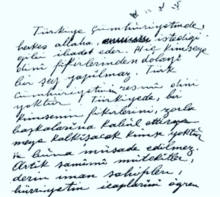 Türkiye Cumhuriyetinde,
herkes Allaha, istediği
gibi ibadet eder. Hiç kimseye
dinî fikirlerinden dolayı
bir şey yapılmaz. Türk
Cumhuriyetinin resmî dini
yoktur. Türkiyede, bir
kimsenin fikirlerini, zorla
başkalarına kabul ettirme-
meye kalkışacak kimse yoktur
ve buna müsade edilmez.
Artık samimî mütekitler,
derin iman sahipleri,
hürriyetin icaplarını öğren